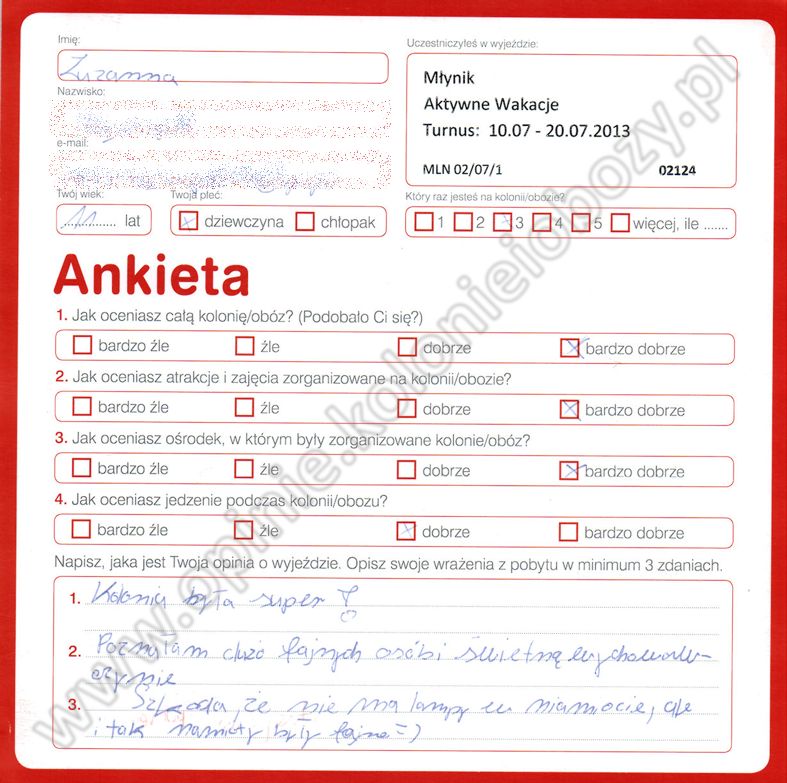 Imię:
Zuzanna
Nazwisko:
e-mail:
Twój wiek:
11 lat
Twoja płeć:
dziewczyna chłopak
Uczestniczyłeś w wyjeździe:
Młynik
Aktywne Wakacje
Turnus: 10.07 - 20.07.2013
MLN 02/07/1 02124
Który raz jesteś na kolonii/obozie?
1 2 3 4 5 więcej, ile .......
Ankieta
1. Jak oceniasz całą kolonię/obóz? (Podobało Ci się?)
bardzo źle źle dobrze bardzo dobrze
2. Jak oceniasz atrakcje i zajęcia zorganizowane na kolonii/obozie?
bardzo źle źle dobrze bardzo dobrze
3. Jak oceniasz ośrodek, w którym były zorganizowane kolonie/obóz?
bardzo źle źle dobrze bardzo dobrze
4. Jak oceniasz jedzenie podczas kolonii/obozu?
bardzo źle źle dobrze bardzo dobrze
Napisz, jaka jest Twoja opinia o wyjeździe. Opisz swoje wrażenia z pobytu w minimum 3 zdaniach.
1. Kolonia była super!
2. Poznałam dużo fajnych osób i świetną wychowaw-
czynię
3. Szkoda, że nie ma lampy w namiocie, ale
i tak namioty były fajne =)
www.opinie.kolonieiobozy.pl